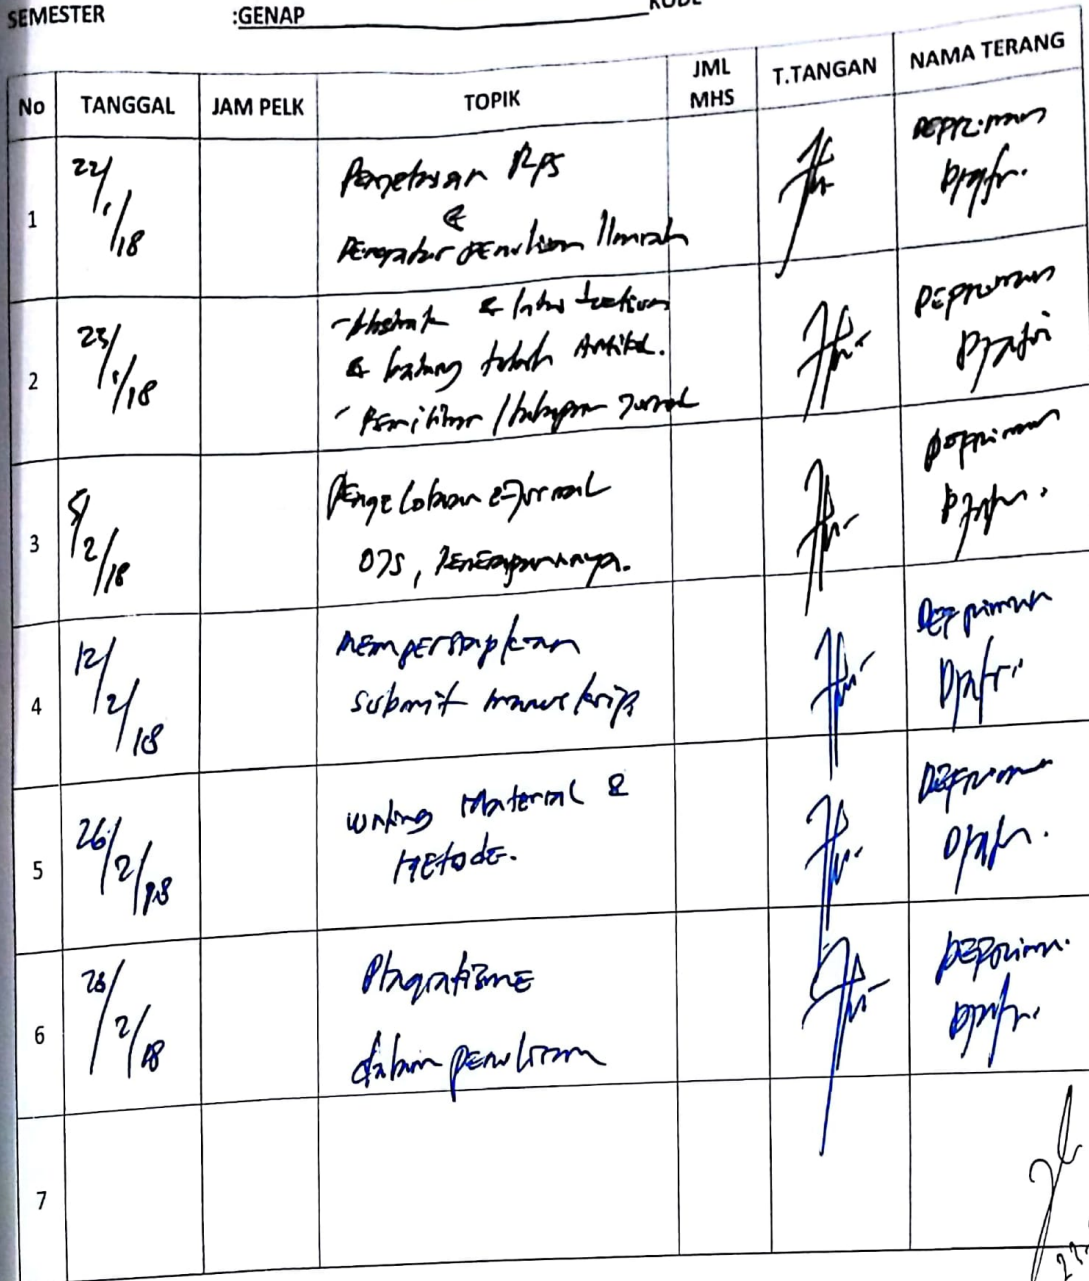 SEMESTER :GENAP KODE
No TANGGAL JAM PELK TOPIK JML MHS T.TANGAN NAMA TERANG
1 22/1/18 RPS
&
Penulisan Ilmiah
Deprimans
Djafri.
2 23/1/18 - Abstrak & Introduction
& batang tubuh Artikel.
- Jurnal
Deprimans
Djafri
3 5/2/18 Pengelolaan e-Jurnal
OJS, Penerapannya.
Deprimans
Djafri.
4 12/2/18 Mempersiapkan
submit manuskrip
Defriman
Djafri.
5 26/2/18 writing Material &
Metode.
Defriman
Djafri.
6 28/2/18 Plagiatisme
dalam penulisan
Defriman.
Djafri.
7